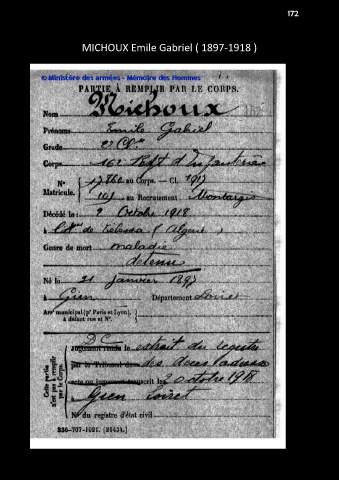 172
MICHOUX Emile Gabriel ( 1897-1918 )
© Ministère des armées - Mémoire des Hommes
PARTIE À REMPLIR PAR LE CORPS.
Nom Michoux
Prénoms Emile Gabriel
Grade 2e Cl.
Corps Regt d'Infanterie
N° Matricule. au Corps. — Cl. 1917
au Recrutement Montargis
Décédé le 2 Octobre 1918
à de Tébessa ( Algérie )
Genre de mort maladie
detenu
Né le 21 janvier 1897
à Gien Département Loiret
Arr' municipal (p' Paris et Lyon),
à défaut rue et N°.
Cette partie n'est pas à remplir par le Corps.
Jugement rendu le extrait du registre
par le Tribunal de des
acte ou jugement transcrit le 2 octobre 1918
à Gien Loiret
N° du registre d'état civil
536-707-1921. [26434.]